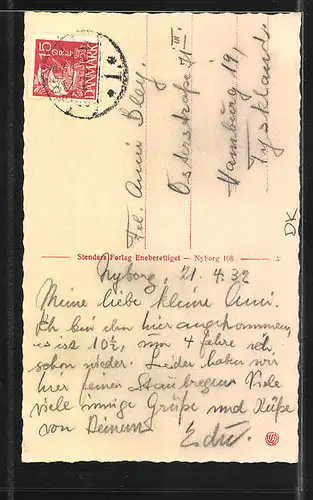 15
ØRE
DANMARK
Frl. Anni Bley.
Osterstraße 71 III.
Hamburg 19,
Tyskland
DK
Stenders Forlag Eneberettiget — Nyborg 108.
Nyborg, 21.4.32
Meine liebe kleine Anni.
Ich bin eben hier angekommen,
es ist 10½, um 4 fahre ich
schon wieder. Leider haben wir
hier feinen Staubregen. Viele
viele innige Grüße und Küße
von Deinem Edu.